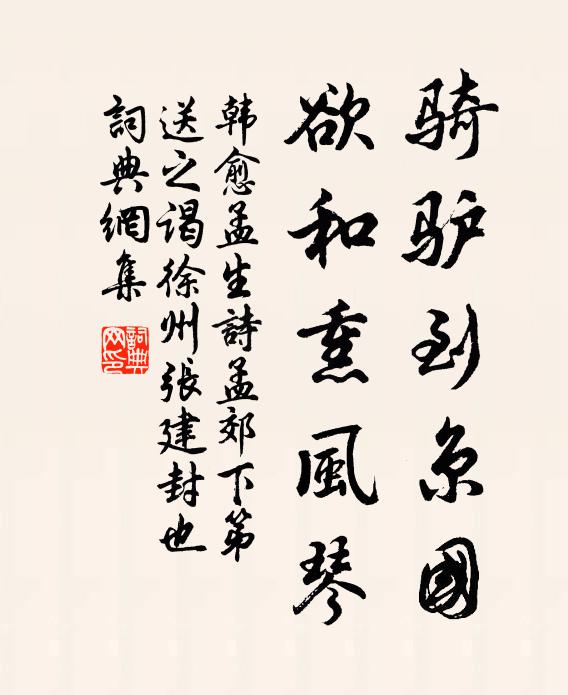 骑驴到京國
欲和熏風琴
韩愈孟生詩孟郊下第
送之谒徐州張建封也
詞典網集
詞典
网印